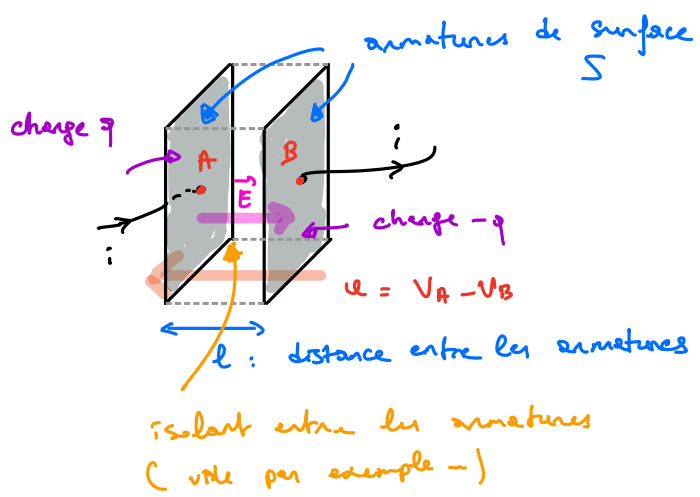 armatures de surface
S
charge q
A
B
i
E
charge -q
i
u = VA - VB
l : distance entre les armatures
isolant entre les armatures
( vide par exemple - )